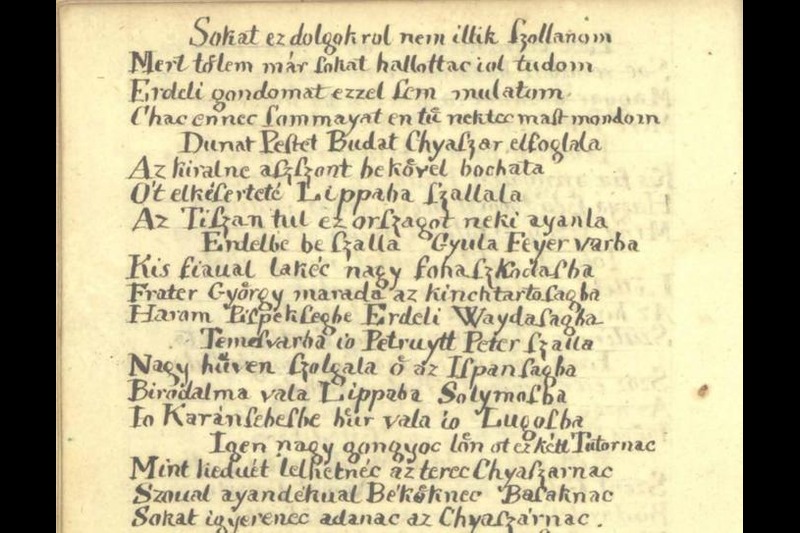 Sokat ez dolgokrol nem illik ſzollanom
Mert tőlem már ſokat hallottac iol tudom
Erdeli gondomat ezzel ſem mulatom
Chac ennec ſommayat en tű nektec maſt mondom
Dunat Peſtet Budat Chyaſzar elfoglala
Az kiralne aſzſzont bekővel bochata
Ot elkéſerteté Lippaba ſzallala
Az Tiſzan tul ez orſzagot neki ayanla
Erdelbe be ſzalla Gyula Feyer varba
Kis fiaual lakéc nagy fohaſzkodaſba
Frater György marada az kinchtartoſagba
Haram Piſpekſegbe Erdeli Waydaſagba
Temeſvarba io Petruytt Peter ſzalla
Nagy hűven ſzolgala ő az Iſpanſagba
Birodalma vala Lippaba Solymoſba
Io Karanſebeſbe hűr vala io Lugoſba
Igen nagy gongyoc lőn ot ez kétt Tutornac
Mint keduét lelhetnéc az terec Chyaſzarnac
Szoual ayandekual Békőknec Baſaknac
Sokat igyerenec adanac az Chyaſzárnac.